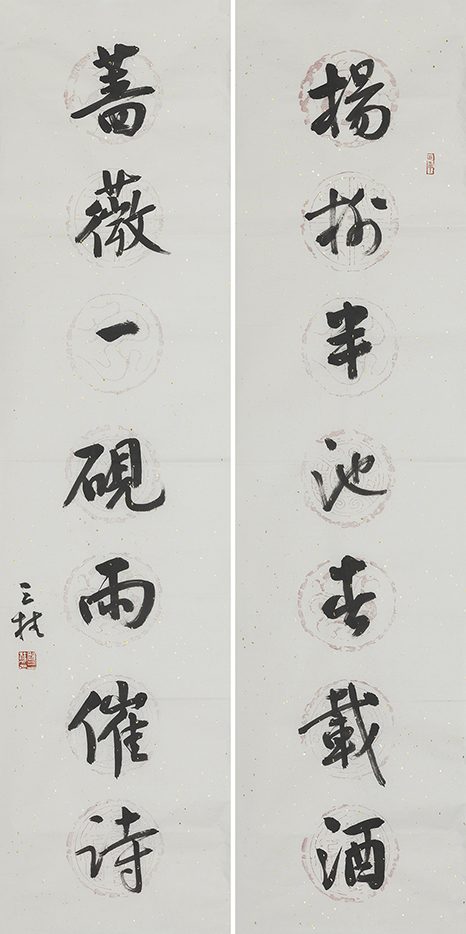 楊柳半池春載酒
薔薇一硯雨催詩